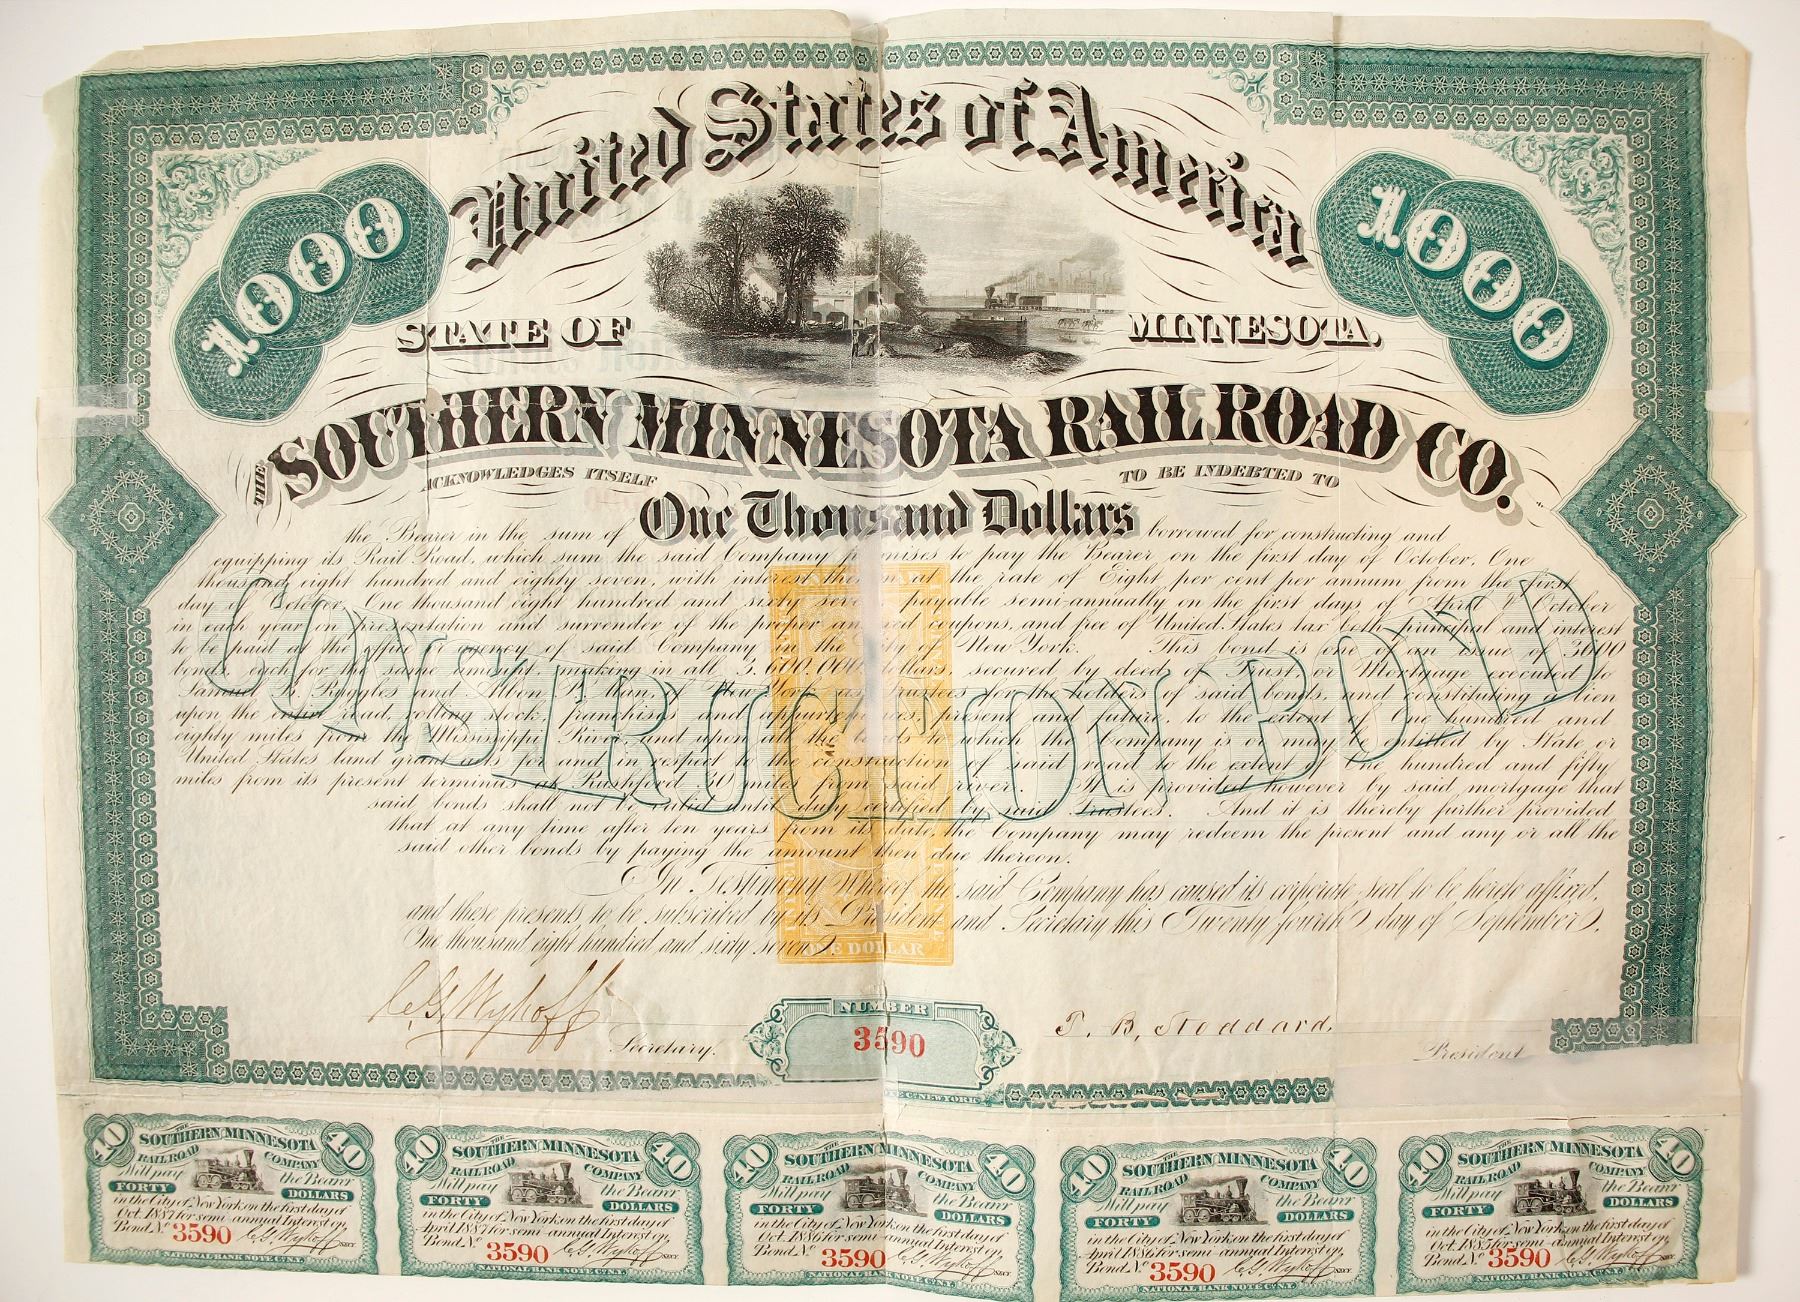 United States of America
1000
1000
STATE OF MINNESOTA.
THE SOUTHERN MINNESOTA RAIL ROAD CO.
ACKNOWLEDGES ITSELF TO BE INDEBTED TO
the Bearer in the sum of One Thousand Dollars borrowed for constructing and
equipping its Rail Road, which sum the said Company promises to pay the Bearer on the first day of October, One
thousand eight hundred and eighty seven, with interest thereon at the rate of Eight per cent per annum from the first
day of October One thousand eight hundred and sixty seven payable semi-annually on the first days of April & October
in each year on presentation and surrender of the proper annexed coupons, and free of United States tax both principal and interest
to be paid at the office or agency of said Company in the City of New York. This bond is one of an issue of 3600
bonds each for the same amount, making in all 3,600,000 dollars secured by deed of Trust or Mortgage executed to
Samuel B. Ruggles and Albon P. Man, New York as Trustees for the holders of said bonds, and constituting a lien
upon the entire road, rolling stock, franchises and appurtenances, present and future, to the extent of One hundred and
eighty miles from the Mississippi River, and upon all the lands to which the Company is or may be entitled by State or
United States land grant acts for and in respect to the construction of said road to the extent of One hundred and fifty
miles from its present terminus at Rushford 30 miles from said river. It is provided however by said mortgage that
said bonds shall not be valid until duly certified by said trustees. And it is thereby further provided
that at any time after ten years from its date, the Company may redeem the present and any or all the
said other bonds by paying the amount then due thereon.
CONSTRUCTION BOND
In Testimony Whereof the said Company has caused its corporate seal to be hereto affixed,
and these presents to be subscribed by its President and Secretary this Twenty fourth day of September
One thousand eight hundred and sixty seven.
ONE DOLLAR
C. G. Wykoff
Secretary.
NUMBER
3590
T. B. Stoddard,
President
NEW YORK
40 THE SOUTHERN MINNESOTA 40
RAIL ROAD COMPANY
Will pay the Bearer
FORTY DOLLARS
in the City of New York on the first day of
Oct. 1887 for semi-annual Interest on
Bond No. 3590 C. G. Wykoff SECY
NATIONAL BANK NOTE CO. N.Y.
40 THE SOUTHERN MINNESOTA 40
RAIL ROAD COMPANY
Will pay the Bearer
FORTY DOLLARS
in the City of New York on the first day of
April 1887 for semi-annual Interest on
Bond No. 3590 C. G. Wykoff SECY
NATIONAL BANK NOTE CO. N.Y.
40 THE SOUTHERN MINNESOTA 40
RAIL ROAD COMPANY
Will pay the Bearer
FORTY DOLLARS
in the City of New York on the first day of
Oct. 1886 for semi-annual Interest on
Bond No. 3590 C. G. Wykoff SECY
NATIONAL BANK NOTE CO. N.Y.
40 THE SOUTHERN MINNESOTA 40
RAIL ROAD COMPANY
Will pay the Bearer
FORTY DOLLARS
in the City of New York on the first day of
April 1886 for semi-annual Interest on
Bond No. 3590 C. G. Wykoff SECY
NATIONAL BANK NOTE CO. N.Y.
40 THE SOUTHERN MINNESOTA 40
RAIL ROAD COMPANY
Will pay the Bearer
FORTY DOLLARS
in the City of New York on the first day of
Oct. 1885 for semi-annual Interest on
Bond No. 3590 C. G. Wykoff SECY
NATIONAL BANK NOTE CO. N.Y.